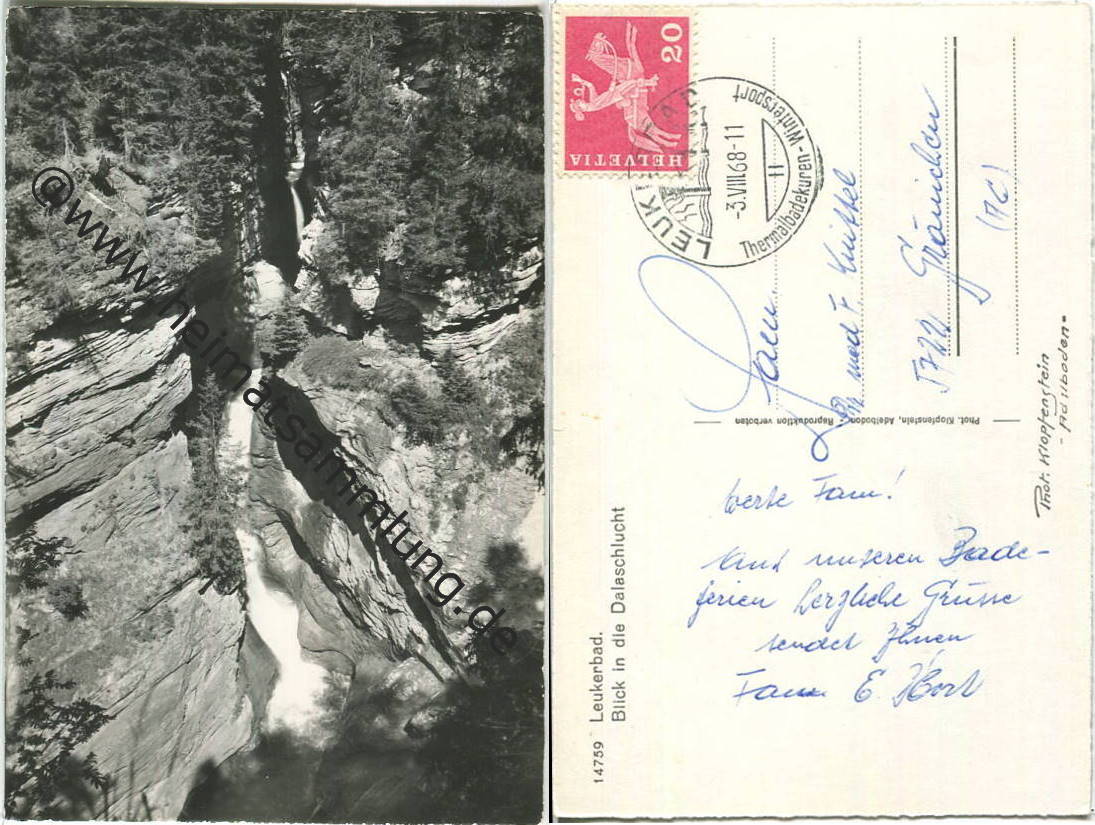 @www.heimatsammlung.de
20
HELVETIA
LEUKERBAD
-3.VIII.68-11
Thermalbadekuren-Wintersport
Fam.
und F. Knittel
5722 Gränichen
Phot. Klopfenstein, Adelboden. - Reproduktion verboten
Phot. Klopfenstein
- Adelboden -
Werte Fam!
Aus unseren Bade-
ferien herzliche Grüsse
sendet Ihnen
Fam E.
14759 Leukerbad.
Blick in die Dalaschlucht